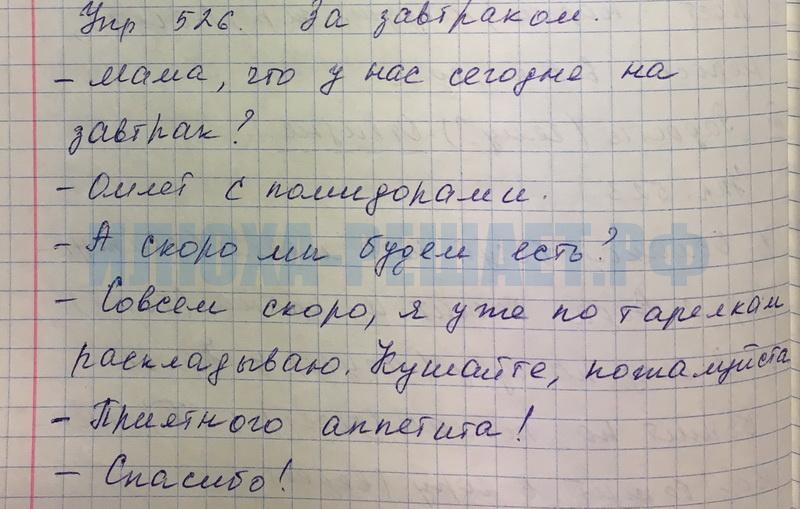 Упр 526. За завтраком.
- Мама, что у нас сегодня на
завтрак?
- Омлет с помидорами.
- А скоро ми будем есть?
ИЛЮХА-РЕШАЕТ.РФ
- Совсем скоро, я уже по тарелкам
раскладываю. Кушайте, пожалуйста
- Приятного аппетита!
- Спасибо!